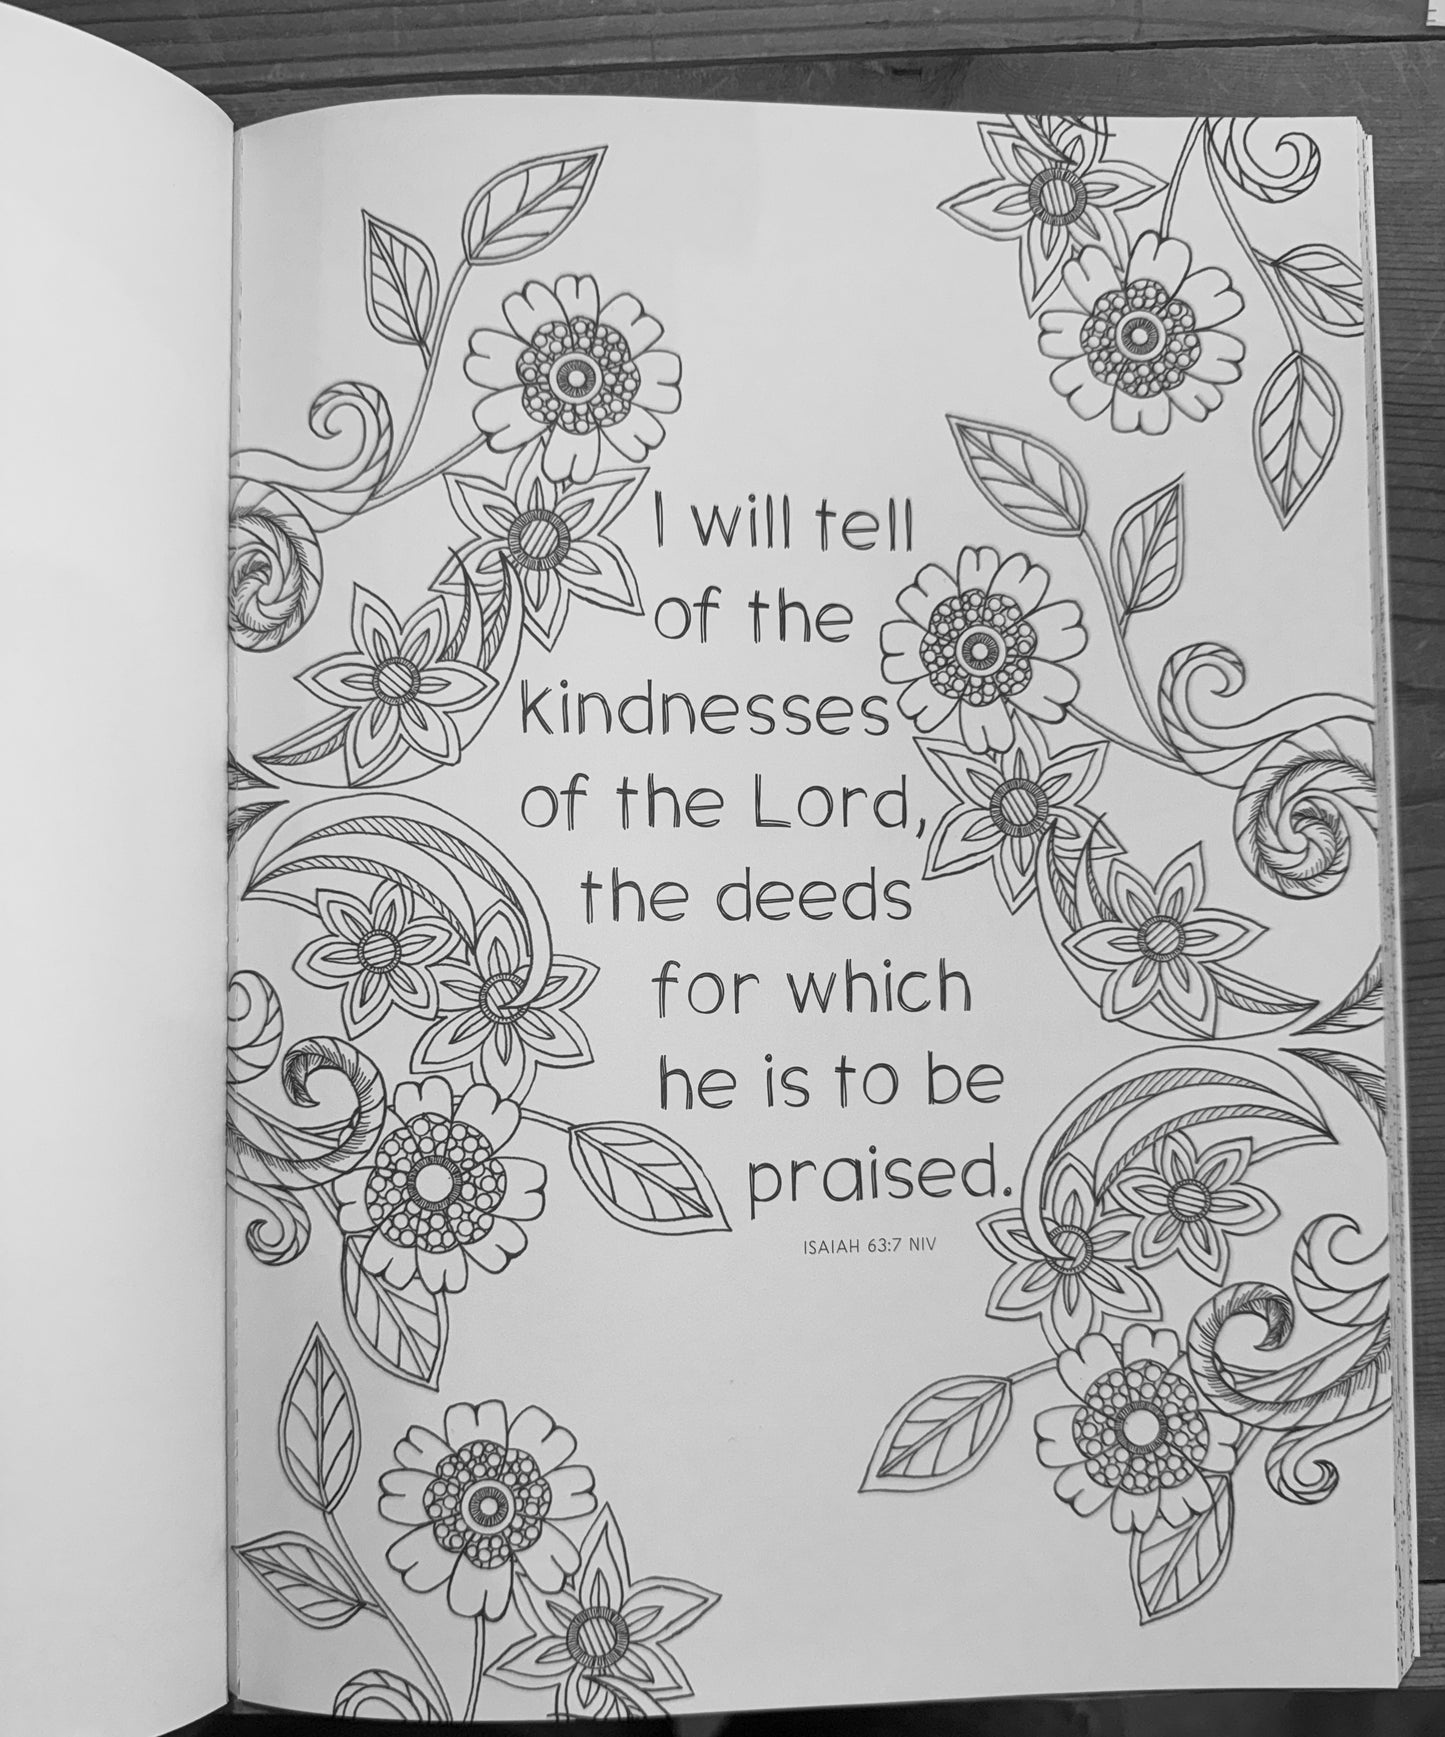 I will tell
of the
kindnesses
of the Lord,
the deeds
for which
he is to be
praised.
ISAIAH 63:7 NIV